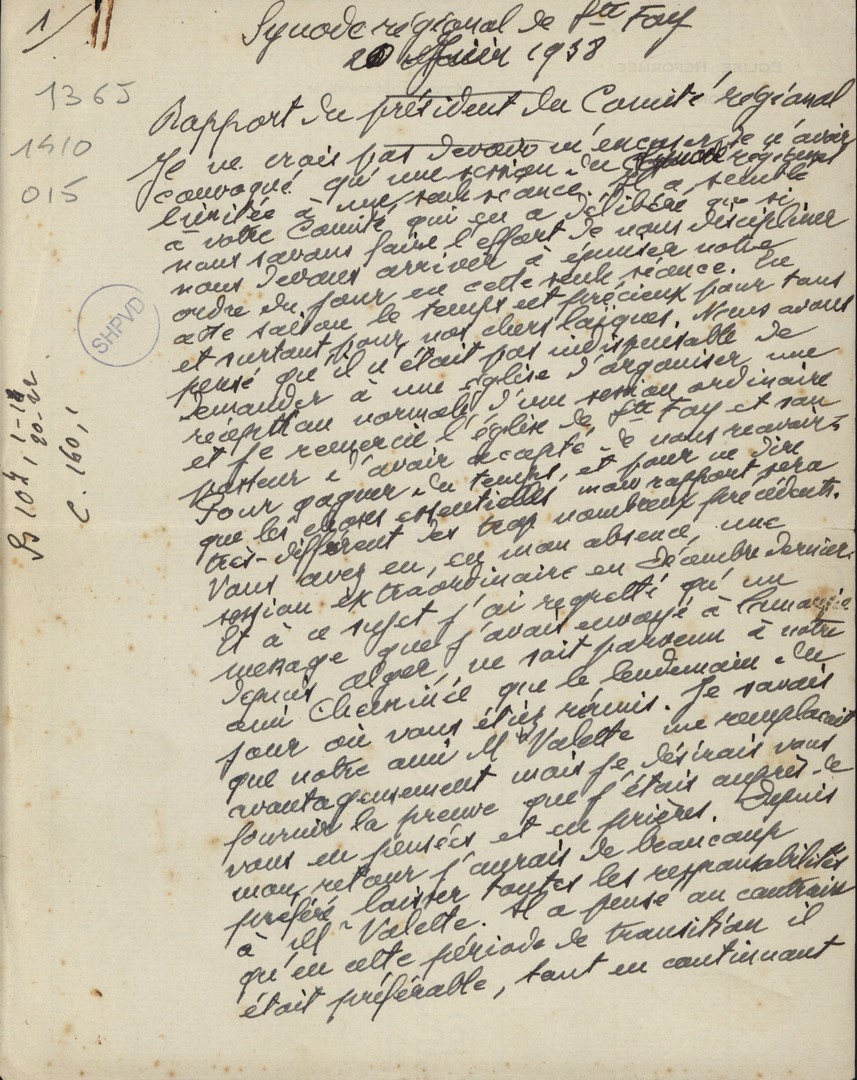 1/
Synode régional de Ste Foy
20 février 1938
1365
1410
015
SHPVD
Ps 107, 1-19
20-22
C. 160, 1
Rapport du président du Comité régional
Je ne crois pas devoir m'excuser de n'avoir
convoqué qu'une session du Synode régional
limitée à une seule séance. Il a semblé
à votre Comité qui en a délibéré que si
nous savons faire l'effort de nous discipliner
nous devons arriver à épuiser notre
ordre du jour en cette seule séance. En
cette saison le temps est précieux pour tous
et surtout pour nos chers laïques. Nous avons
pensé qu'il n'était pas indispensable de
demander à une église d'organiser une
réception normale d'une session ordinaire
et je remercie l'église de Ste Foy et son
pasteur d'avoir accepté de nous recevoir.
Pour gagner du temps, et pour ne dire
que les choses essentielles mon rapport sera
très-différent des trop nombreux précédents.
Vous avez eu, en mon absence, une
session extraordinaire en Décembre dernier.
Et à ce sujet j'ai regretté qu'un
message que j'avais envoyé à l'avance
depuis Alger, ne soit parvenu à notre
ami Cheminée que le lendemain du
jour où vous étiez réunis. Je savais
que notre ami Mr Valette me remplaçait
avantageusement mais je désirais vous
fournir la preuve que j'étais auprès de
vous en pensées et en prières. Depuis
mon retour j'aurais de beaucoup
préféré laisser toutes les responsabilités
à Mr Valette. Il a pensé au contraire
qu'en cette période de transition il
était préférable, tout en continuant